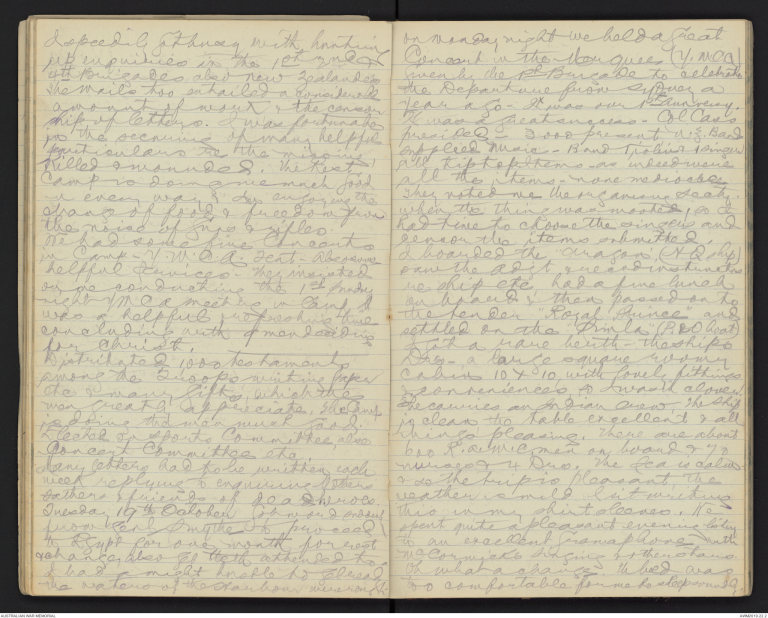 I speedily got busy with hunting
up enquiries in the 1st 3rd &
4th Brigades also New Zealanders
The mails too entailed a considerable
amount of work & the censor
ship of letters. I was fortunate
in the securing of many helpful
particulars re the missing
killed & wounded. The Rest
Camp is doing me much good
in every way & I'm enjoying the
change of food & freedom from
the noise of guns & rifles.
We had some fine Concerts
in Camp Y.M.C.A. Tent. Also some
helpful services. They insisted
on me conducting the 1st Sunday
night YMCA meeting in Camp. It
was a helpful refreshing time
concluding with 4 men deciding
for Christ.
Distributed 1000 testaments
among the Troops writing paper
etc & many gifts, which the
men greatly appreciate. The Camp
is doing the men much good
Elected on Sports Committee, also
Concert Committee etc.
Many letters had to be written each
week replying to enquiring fathers
mothers & friends of dead heroes.
Tuesday 19th October Got word
from Col Smythe to proceed
to Egypt for one month for rest
& change, also get teeth attended to
I had a night horrible
the waters of the Harbour
on Monday night we held a great
Concert in the Marquee (Y.M.C.A)
given by the 1st Brigade to celebrate
the Departure from Sydney a
Year ago - It was our 1st Anniversary.
It was a great success - Col Cass
presided - 3000 present N.Z. Band
supplied Music - Band Violins & singers
all tip top Items - as indeed were
all the items - none mediocre
They voted me the organising Secty
when the thing was mooted, so I
had time to choose the singers and
censor the items submitted
I boarded the "Aragon" (H.Q. ship)
saw the Adjt & recd instructions
re ship etc, had a fine lunch
on board & then passed on to
the tender "Royal Prince" and
settled on the "Simla" (P&O boat)
Got a rare berth - the ships
Drs - a large square roomy
Cabin 10 x 10 with lovely fittings
& conveniences so I was in clover
She carries an Indian crew. The ship
is clean the table excellent & all
things pleasing. There are about
600 men on board & 70
nurses & 4 Drs. The Sea is calm
& so the trip is pleasant, the
weather is mild. I sit writing
this in my shirt sleeves. We
spent quite a pleasant evening listeng
to an excellent gramaphone with
McCormacks singing & other stars.
Oh what a change the bed was
too comfortable for me to sleep soundly.
AUSTRALIAN WAR MEMORIAL